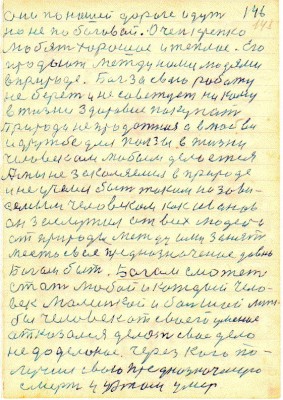 они по нашей дороге идут 146
но не по боговой. Очен крепко
любят хорошое и теплое. Его
продают между нами людями
в природе. Бог за свою работу
не берет и не советует никому
в жизни здоровие покупат
Природа не продотная а в любви
и дружбе для пользы в жизни
человеком любым делается
А мы не заколялися в природе
и не училис быт таким независи-
емым человеком как иванов
он заслужил от всих людей
от природы между ими занят
место свое предназначение
Богом быт. Богом сможет
стат любой и каждый чело-
век малинкой и большой
бы человек от своего умение
отказался делат свое дело
недоделоное. через кого по-
лучил свою предназначеную
смерт и у етом умер